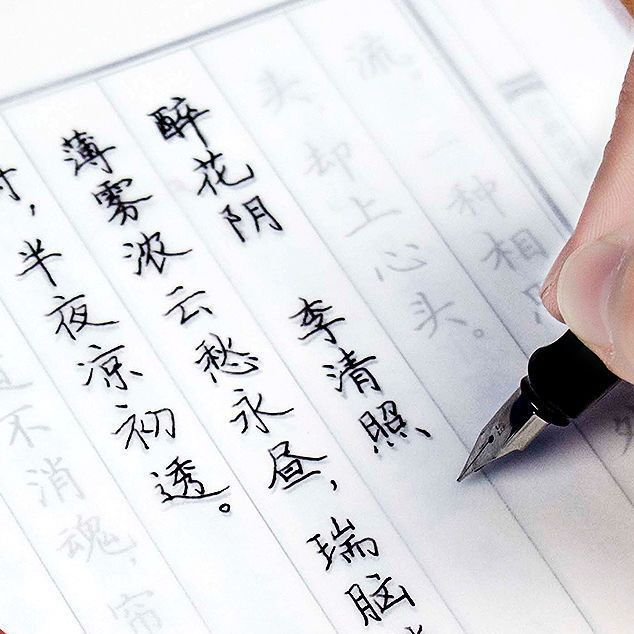 流。一种相
头，却上心头。
醉花阴 李清照
薄雾浓云愁永昼，瑞脑
，半夜凉初透。
不消魂，帘